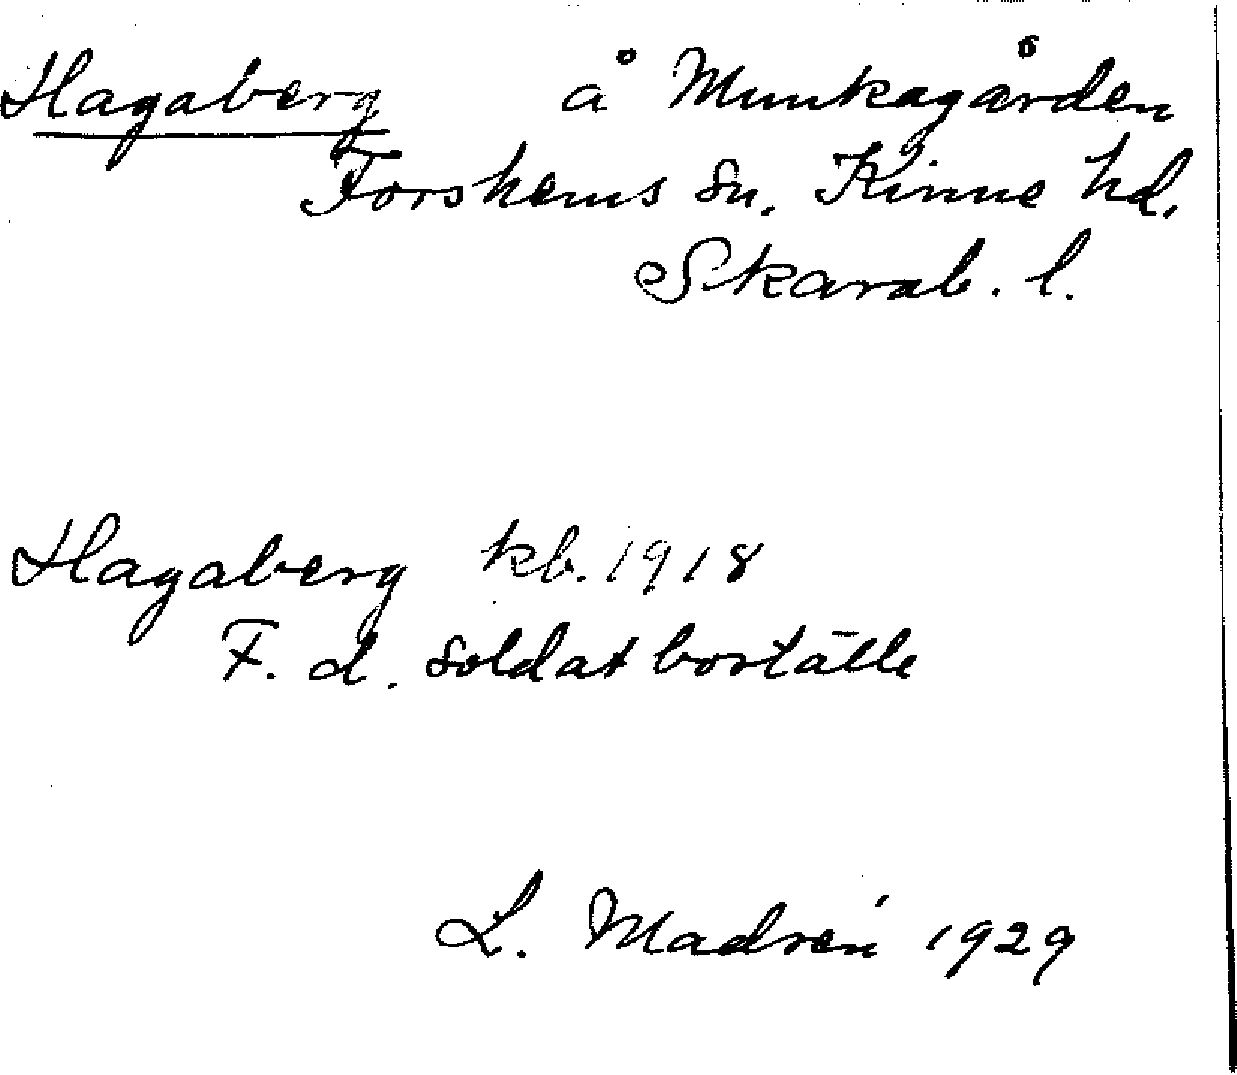 Hagaberg å Munkagården
Forshems sn. Kinne hd.
Skarab. l.
Hagaberg kb. 1918
F. d. soldatboställe
L. Madrén 1929